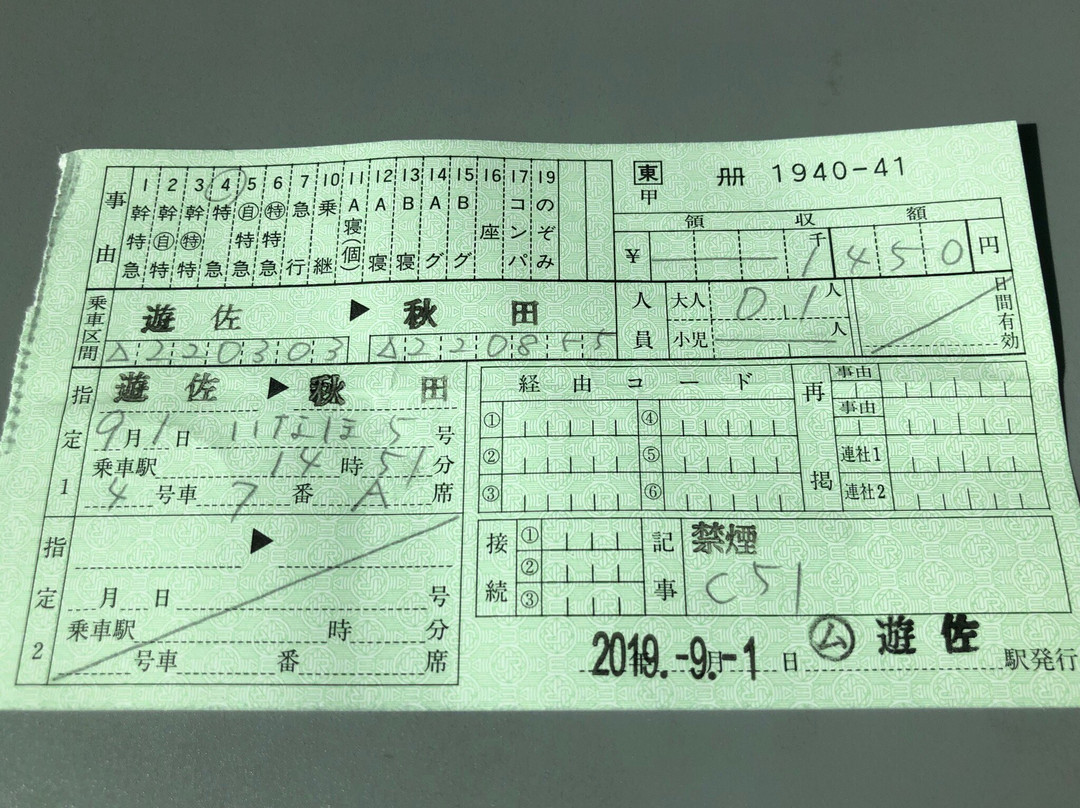 東 冊 1940-41
甲
事由
1 幹特急
2 幹自特
3 幹特特
4 特急
5 自特急
6 特特急
7 急行
10 乗継
11 A寝(個)
12 A寝
13 B寝
14 Aグ
15 Bグ
16 座
17 コンパ
19 のぞみ
領収額
¥ 1千450円
乗車区間
遊佐 ▶ 秋田
△220303 △220855
人員
大人 01人
小児 人
日間有効
指定1
遊佐 ▶ 秋田
9月1日 いなほ5号
乗車駅 14時51分
4号車 7番 A席
指定2
▶
月 日 号
乗車駅 時 分
号車 番 席
経由コード
① ④
② ⑤
③ ⑥
再掲
事由
事由
連社1
連社2
接続
①
②
③
記事
禁煙
C51
2019.-9.-1
年 月 日 ム 遊佐 駅発行